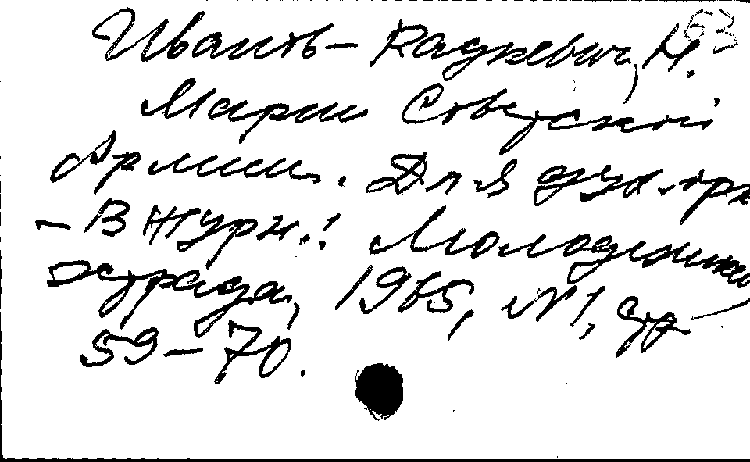 63
Иванов-Радкевич, Н.
Марш Советской
Армии. Для дух. орк
- В журн.: Молодежная
эстрада, 1965, №1, стр
59-70.